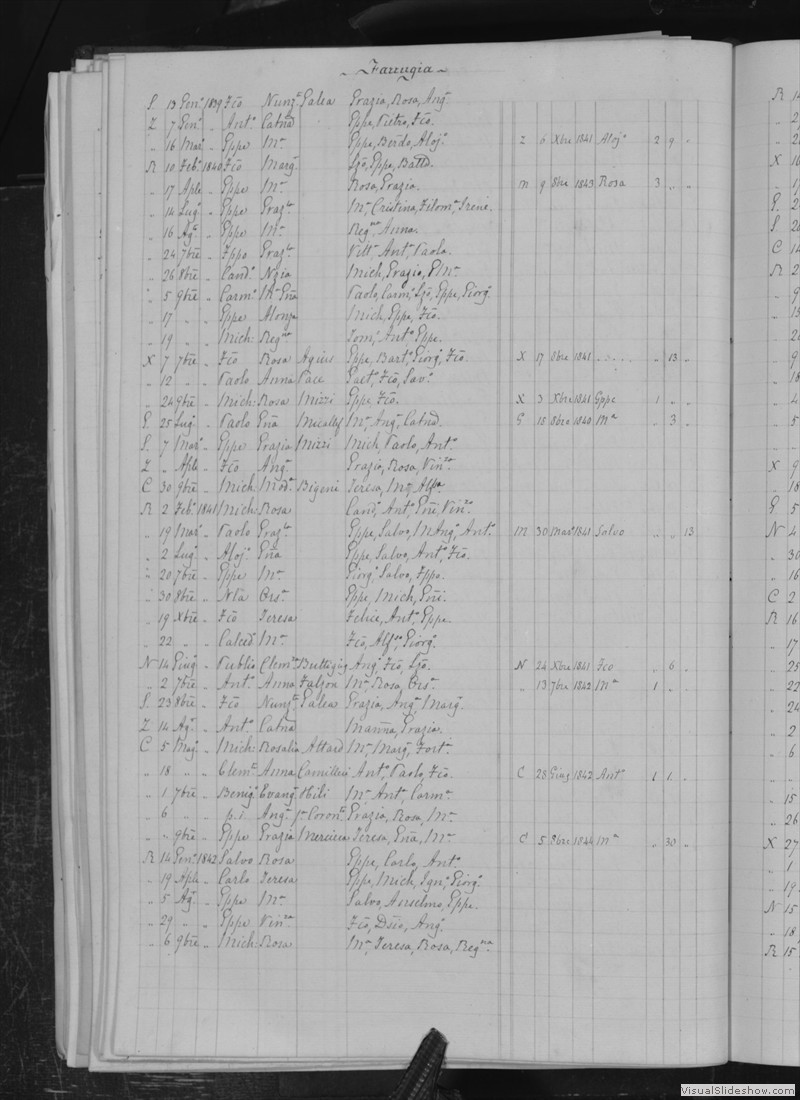 Farrugia
S 13 Gen° 1839 Fco Nunz.a Galea Grazia, Rosa, Ang.a
Z 7 Gen° " Ant.o Catnā Gppe, Pietro, Fco.
" 16 Mar° " Gppe M.a Gppe, Berdo, Aloj.o Z 6 Xbre 1841 Aloj.o 2 9 "
R 10 Feb.o 1840 Fco Marg.a Gppe, Battd.
" 17 Aple " Gppe M.a Rosa, Grazia. M 9 8bre 1843 Rosa 3 " "
" 14 Lug.o " Gppe Graz.la M.a Cristina, Filom.a Irene.
" 16 Ag.o " Gppe M.a Reg.na Anna.
" 24 7bre " Fppo Graz.la Vitt.a Ant.o Paolo.
" 26 8bre " Cand.o Nzia Mich, Grazio, M.a
" 5 9bre " Carm.o Paolo, Carm.o Gppe, Giorg.o
" 17 " " Gppe Alonza Mich, Gppe, Fco.
" 19 " " Mich: Reg.na Tom.o Ant.o Gppe.
X 7 7bre " Fco Rosa Agius Gppe, Bart.o Giorg.o Fco. X 17 8bre 1841 " 13 "
" 12 " " Paolo Anna Pace Gaet.o Fco, Sav.o
" 24 9bre " Mich: Rosa Mizzi Gppe, Fco. X 3 Xbre 1841 Gppe 1 " "
G 25 Lug.o " Paolo Enā Micallef M.a Ang.a Catnā. G 15 8bre 1840 M.a " 3 "
S 7 Mar.o " Gppe Grazia Mizzi Mich, Paolo, Ant.o
Z " Aple " Fco Ang.a Grazia, Rosa, Vin.za
C 30 9bre " Mich: Mod.a Bigeni Teresa, M.a
R 2 Feb.o 1841 Mich: Rosa Cand.o Ant.o Vin.zo
" 19 Mar.o " Paolo Graz.la Gppe, Salvo, M Ang.o Ant.o M 30 Mar.o 1841 Salvo " " 13
" 2 Lug.o " Aloj.o Enā Gppe, Salvo, Ant.o Fco.
" 20 7bre " Gppe M.a Giorg.o Salvo, Fppo.
" 30 8bre " Nlā Ors.a Gppe, Mich,
" 19 Xbre " Fco Teresa Felice, Ant.o Gppe
" 22 " " Calced.o M.a Fco, Alf.so Giorg.o
N 14 Giug.o " Publio Clem.a Buttigieg Ang.o Fco, N 24 Xbre 1841 Fco " 6 "
" 2 7bre " Ant.o Anna Falzon M.a Rosa, Ors.a " 13 7bre 1842 M.a 1 " "
S 23 8bre " Fco Nunz.a Galea Grazia, Ang.a Marg.a
Z 14 Ag.o " Ant.o Catnā Grazia.
C 5 Mag.o " Mich: Rosalia Attard M.a Marg.a Fort.a
" 18 " " Clem.e Anna Camilleri Ant.o Paolo, Fco. C 28 Giug. 1842 Ant.o 1 1 "
" 1 7bre " Benig.o Evang.a Hili M.a Ant.a Carm.a
" 6 " " p.i Ang.a Grazia, Rosa, M.a
" " 9bre " Gppe Grazia Mercieca Teresa, Enā, M.a C 5 8bre 1844 M.a " 30 "
R 14 Gen.o 1842 Salvo Rosa Gppe, Carlo, Ant.o
" 19 Aple " Carlo Teresa Gppe, Mich, Ign.o Giorg.o
" 5 Ag.o " Gppe M.a Salvo, Anselmo, Gppe.
" 29 " " Gppe Vin.za Fco, Ang.o
" 6 9bre " Mich: Rosa M.a Teresa, Rosa, Reg.na
VisualSlideshow.com